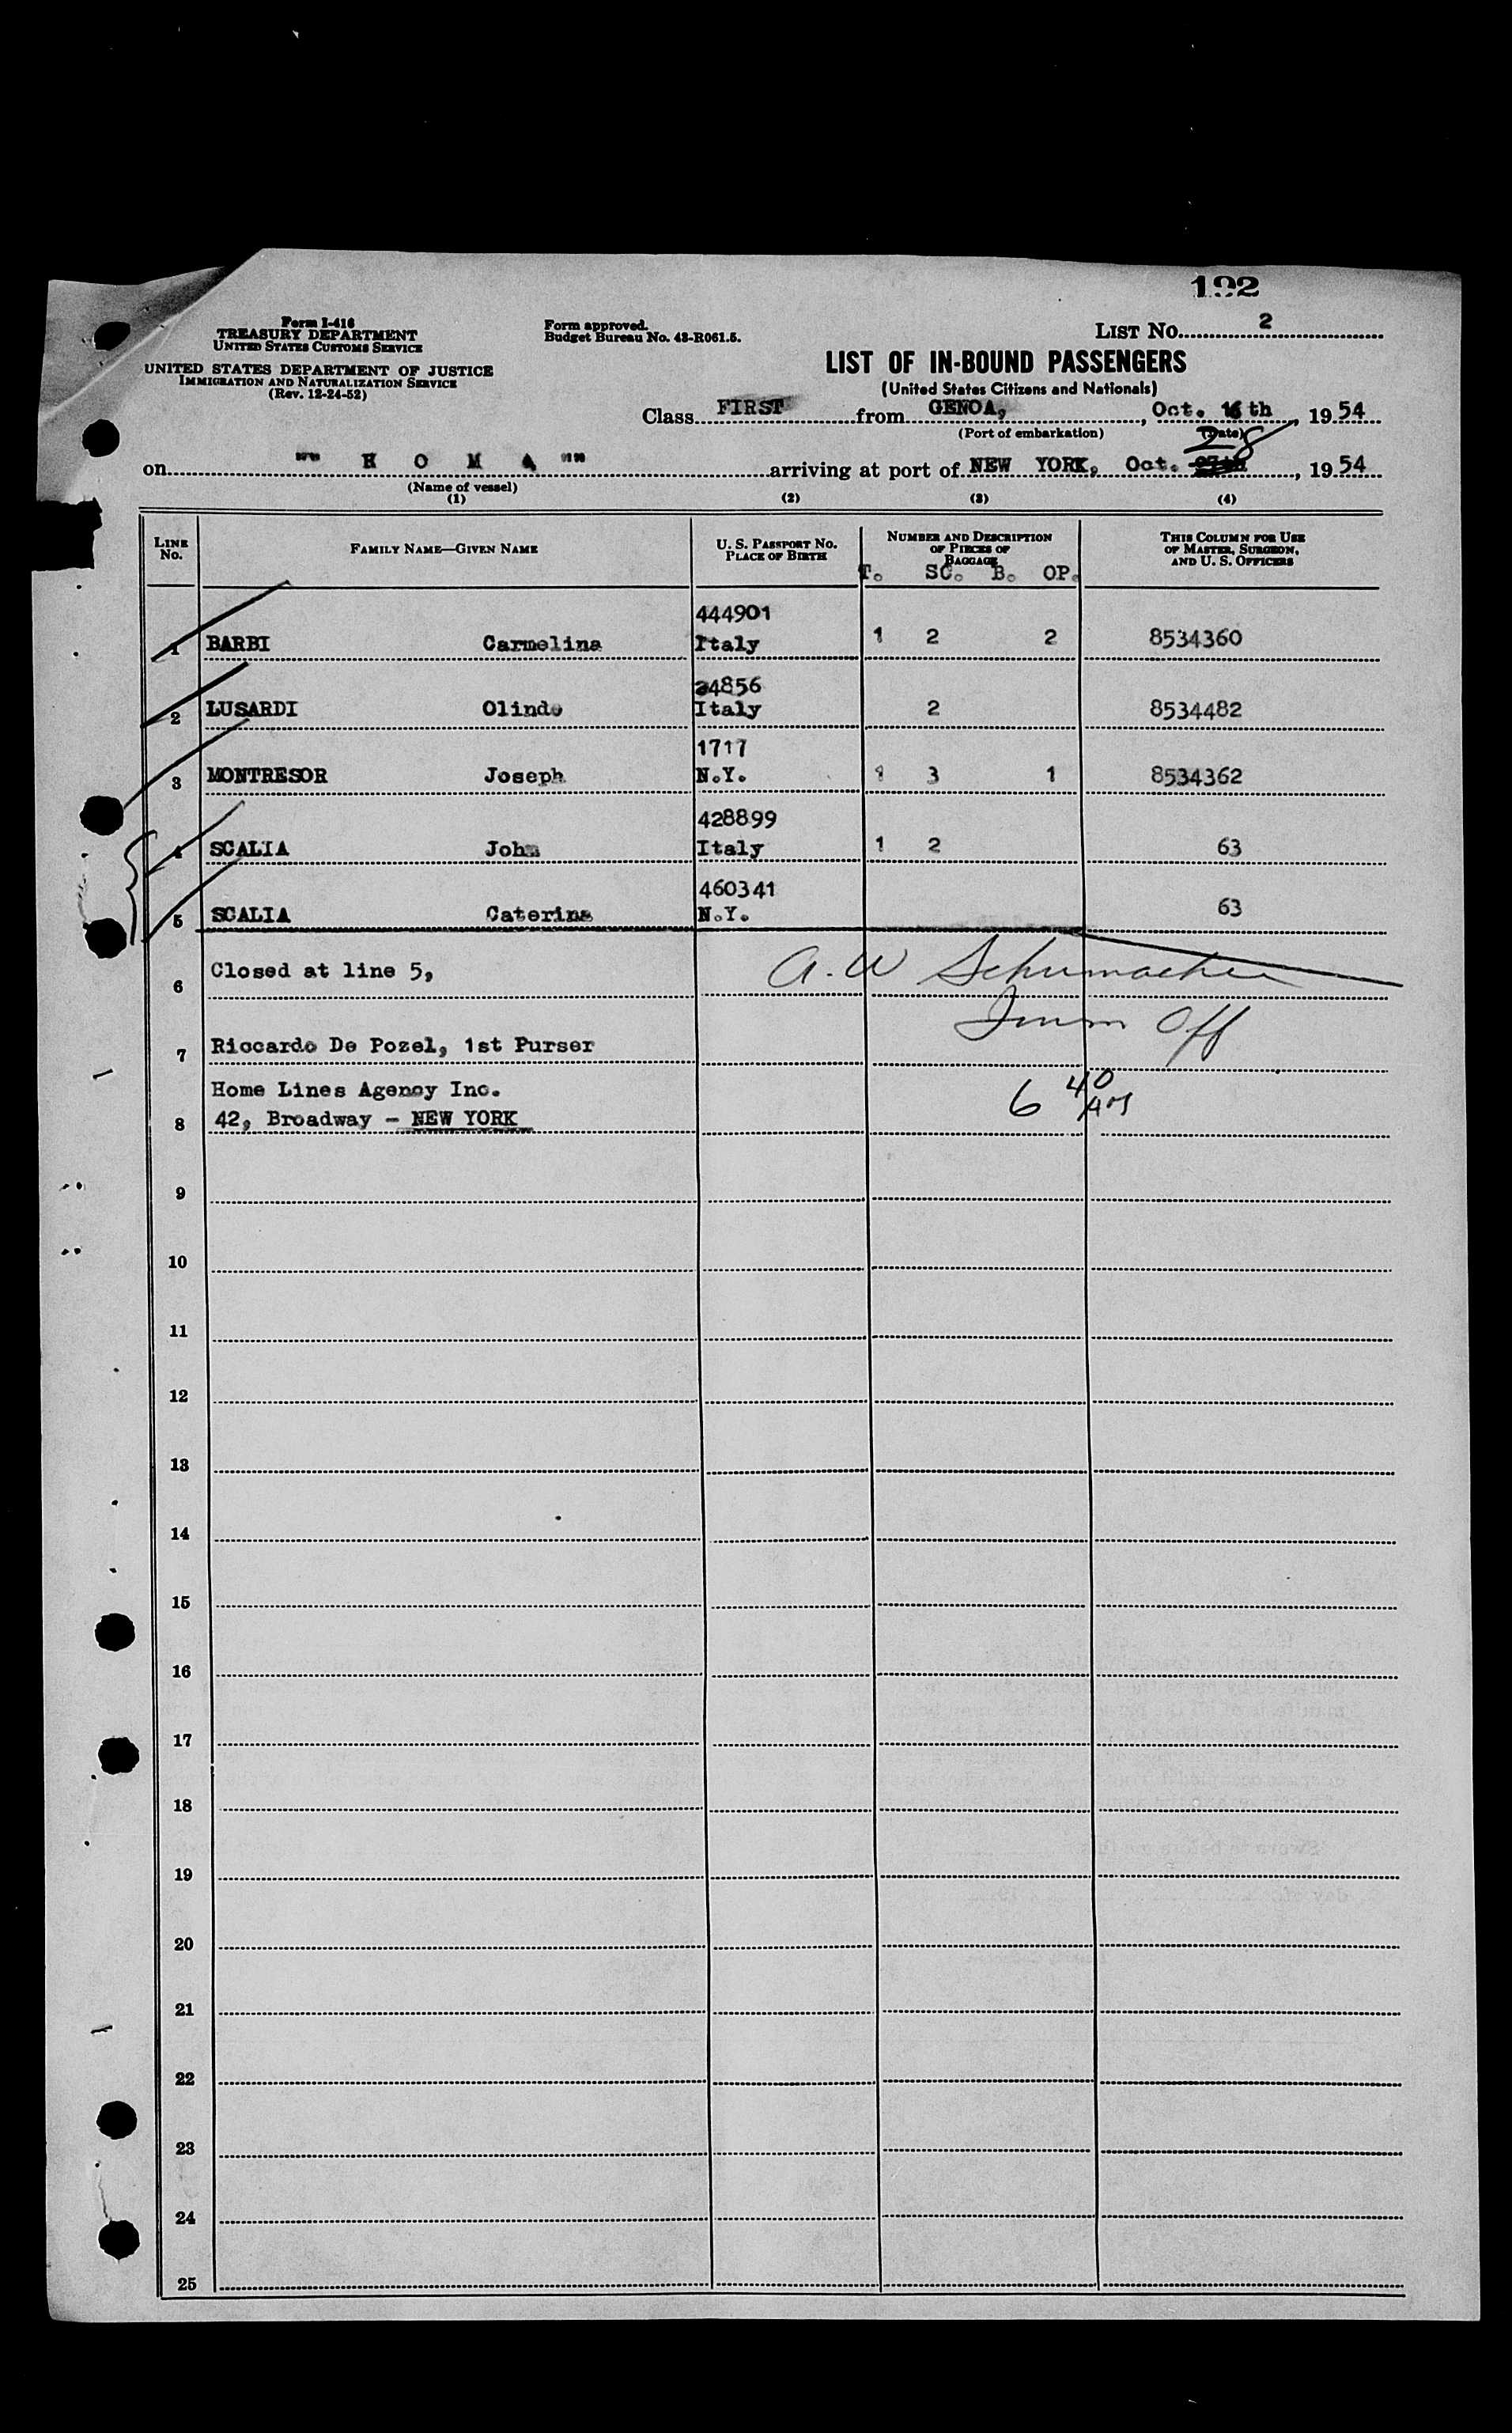 192
Form I-418
TREASURY DEPARTMENT
UNITED STATES CUSTOMS SERVICE
UNITED STATES DEPARTMENT OF JUSTICE
IMMIGRATION AND NATURALIZATION SERVICE
(Rev. 12-24-52)
Form approved.
Budget Bureau No. 43-R061.5.
LIST No. 2
LIST OF IN-BOUND PASSENGERS
(United States Citizens and Nationals)
Class FIRST from GENOA, , Oct. 16th , 19 54
(Port of embarkation) (Date)
28
on " H O M A " arriving at port of NEW YORK, Oct. 27th , 19 54
(Name of vessel)
(1) (2) (3) (4)
LINE No. FAMILY NAME—GIVEN NAME U. S. PASSPORT No. PLACE OF BIRTH NUMBER AND DESCRIPTION OF PIECES OF BAGGAGE THIS COLUMN FOR USE OF MASTER, SURGEON, AND U. S. OFFICERS
T. SC. B. OP.
444901
1 BARBI Carmelina Italy 1 2 2 8534360
24856
2 LUSARDI Olindo Italy 2 8534482
1717
3 MONTRESOR Joseph N.Y. 1 3 1 8534362
428899
4 SCALIA John Italy 1 2 63
460341
5 SCALIA Caterina N.Y. 63
6 Closed at line 5, A. W Schumacher
Imm Off
7 Riccardo De Pozel, 1st Purser
Home Lines Agency Inc. 6 40 AM
8 42, Broadway - NEW YORK
9
10
11
12
13
14
15
16
17
18
19
20
21
22
23
24
25